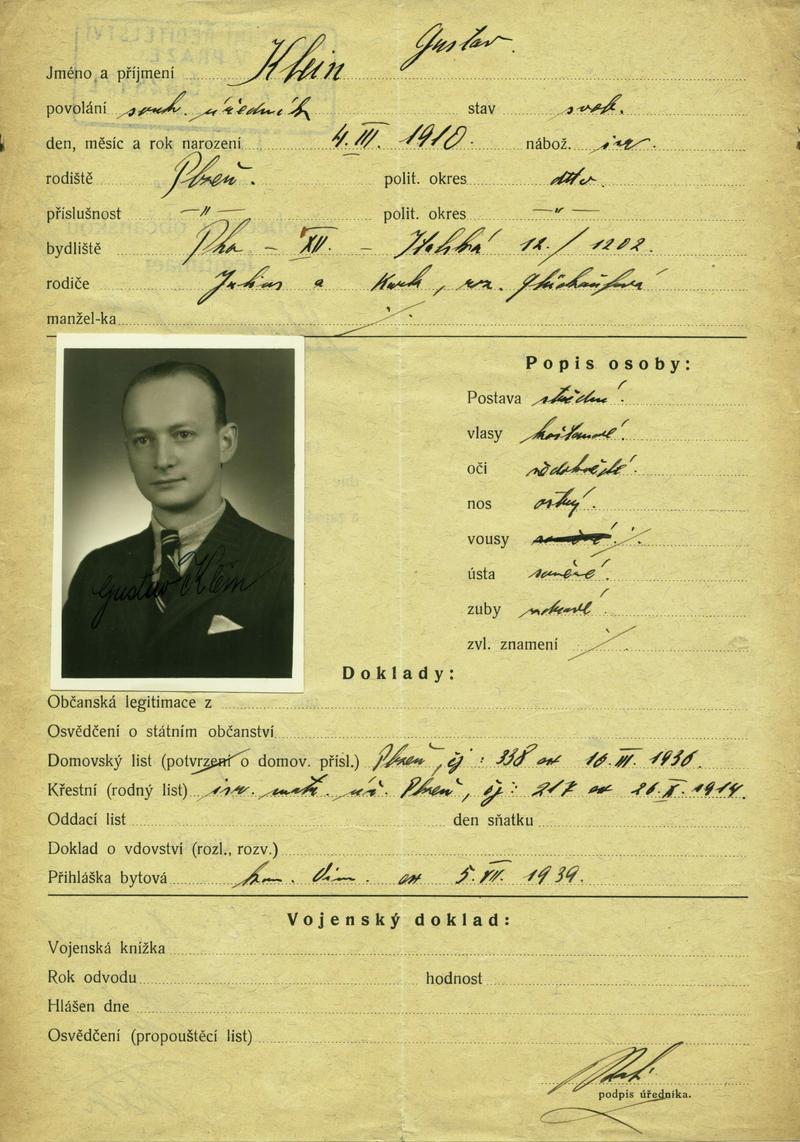 Jméno a příjmení Klein Gustav.
povolání souk. úředník stav svob.
den, měsíc a rok narození 4. III. 1910. nábož. isr.
rodiště Plzeň. polit. okres dtto.
příslušnost —"— polit. okres —"—
bydliště Pha – XII. – Italská 12./1202.
rodiče Julius a
manžel-ka ./.
Popis osoby:
Postava střední.
vlasy kaštanové.
oči
nos ostrý.
vousy ./.
ústa souměré.
zuby
zvl. znamení ./.
Gustav Klein
Doklady:
Občanská legitimace z
Osvědčení o státním občanství
Domovský list (potvrzení o domov. přísl.) Plzeň, čj: 338 ex 16. III. 1936.
Křestní (rodný list) isr. matr. úř. Plzeň, čj: 217 ex 26. X. 1914.
Oddací list den sňatku
Doklad o vdovství (rozl., rozv.)
Přihláška bytová kom. Vin. ex 5. VII. 1939.
Vojenský doklad:
Vojenská knížka
Rok odvodu hodnost
Hlášen dne
Osvědčení (propouštěcí list)
podpis úředníka.